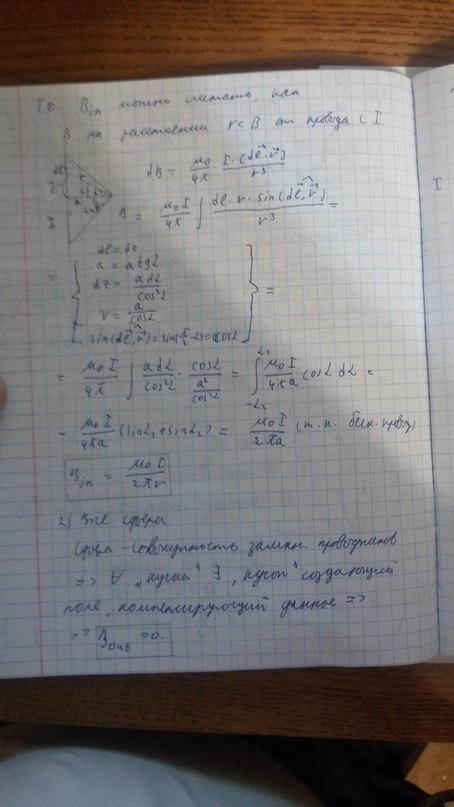 Т.о. B_in можно считать, как
B на расстоянии r<B от провода с I.
dB = μ₀/4π · I·[dl⃗·r⃗]/r³
B = μ₀I/4π ∫ dl·r·sin(dl⃗,r⃗)/r³ =
= { dl = dz
a = a tgα
dz = a dα/cos²α
r = a/cosα
sin(dl⃗,r⃗) = sin(π/2-α) = cosα } =
= μ₀I/4π ∫ a dα/cos²α · cosα/(a²/cos²α) = ∫ μ₀I/4πa cosα dα =
= μ₀I/4πa (sinα₁+sinα₂) = μ₀I/2πa (т.к. беск. провод)
B_in = μ₀I/2πr
2) Вне сферы
Сфера - совокупность замкн. проводников
=> ∀ „куска" ∃ „кусок" создающий
поле, компенсирующий данное =>
=> B_out = 0.
I